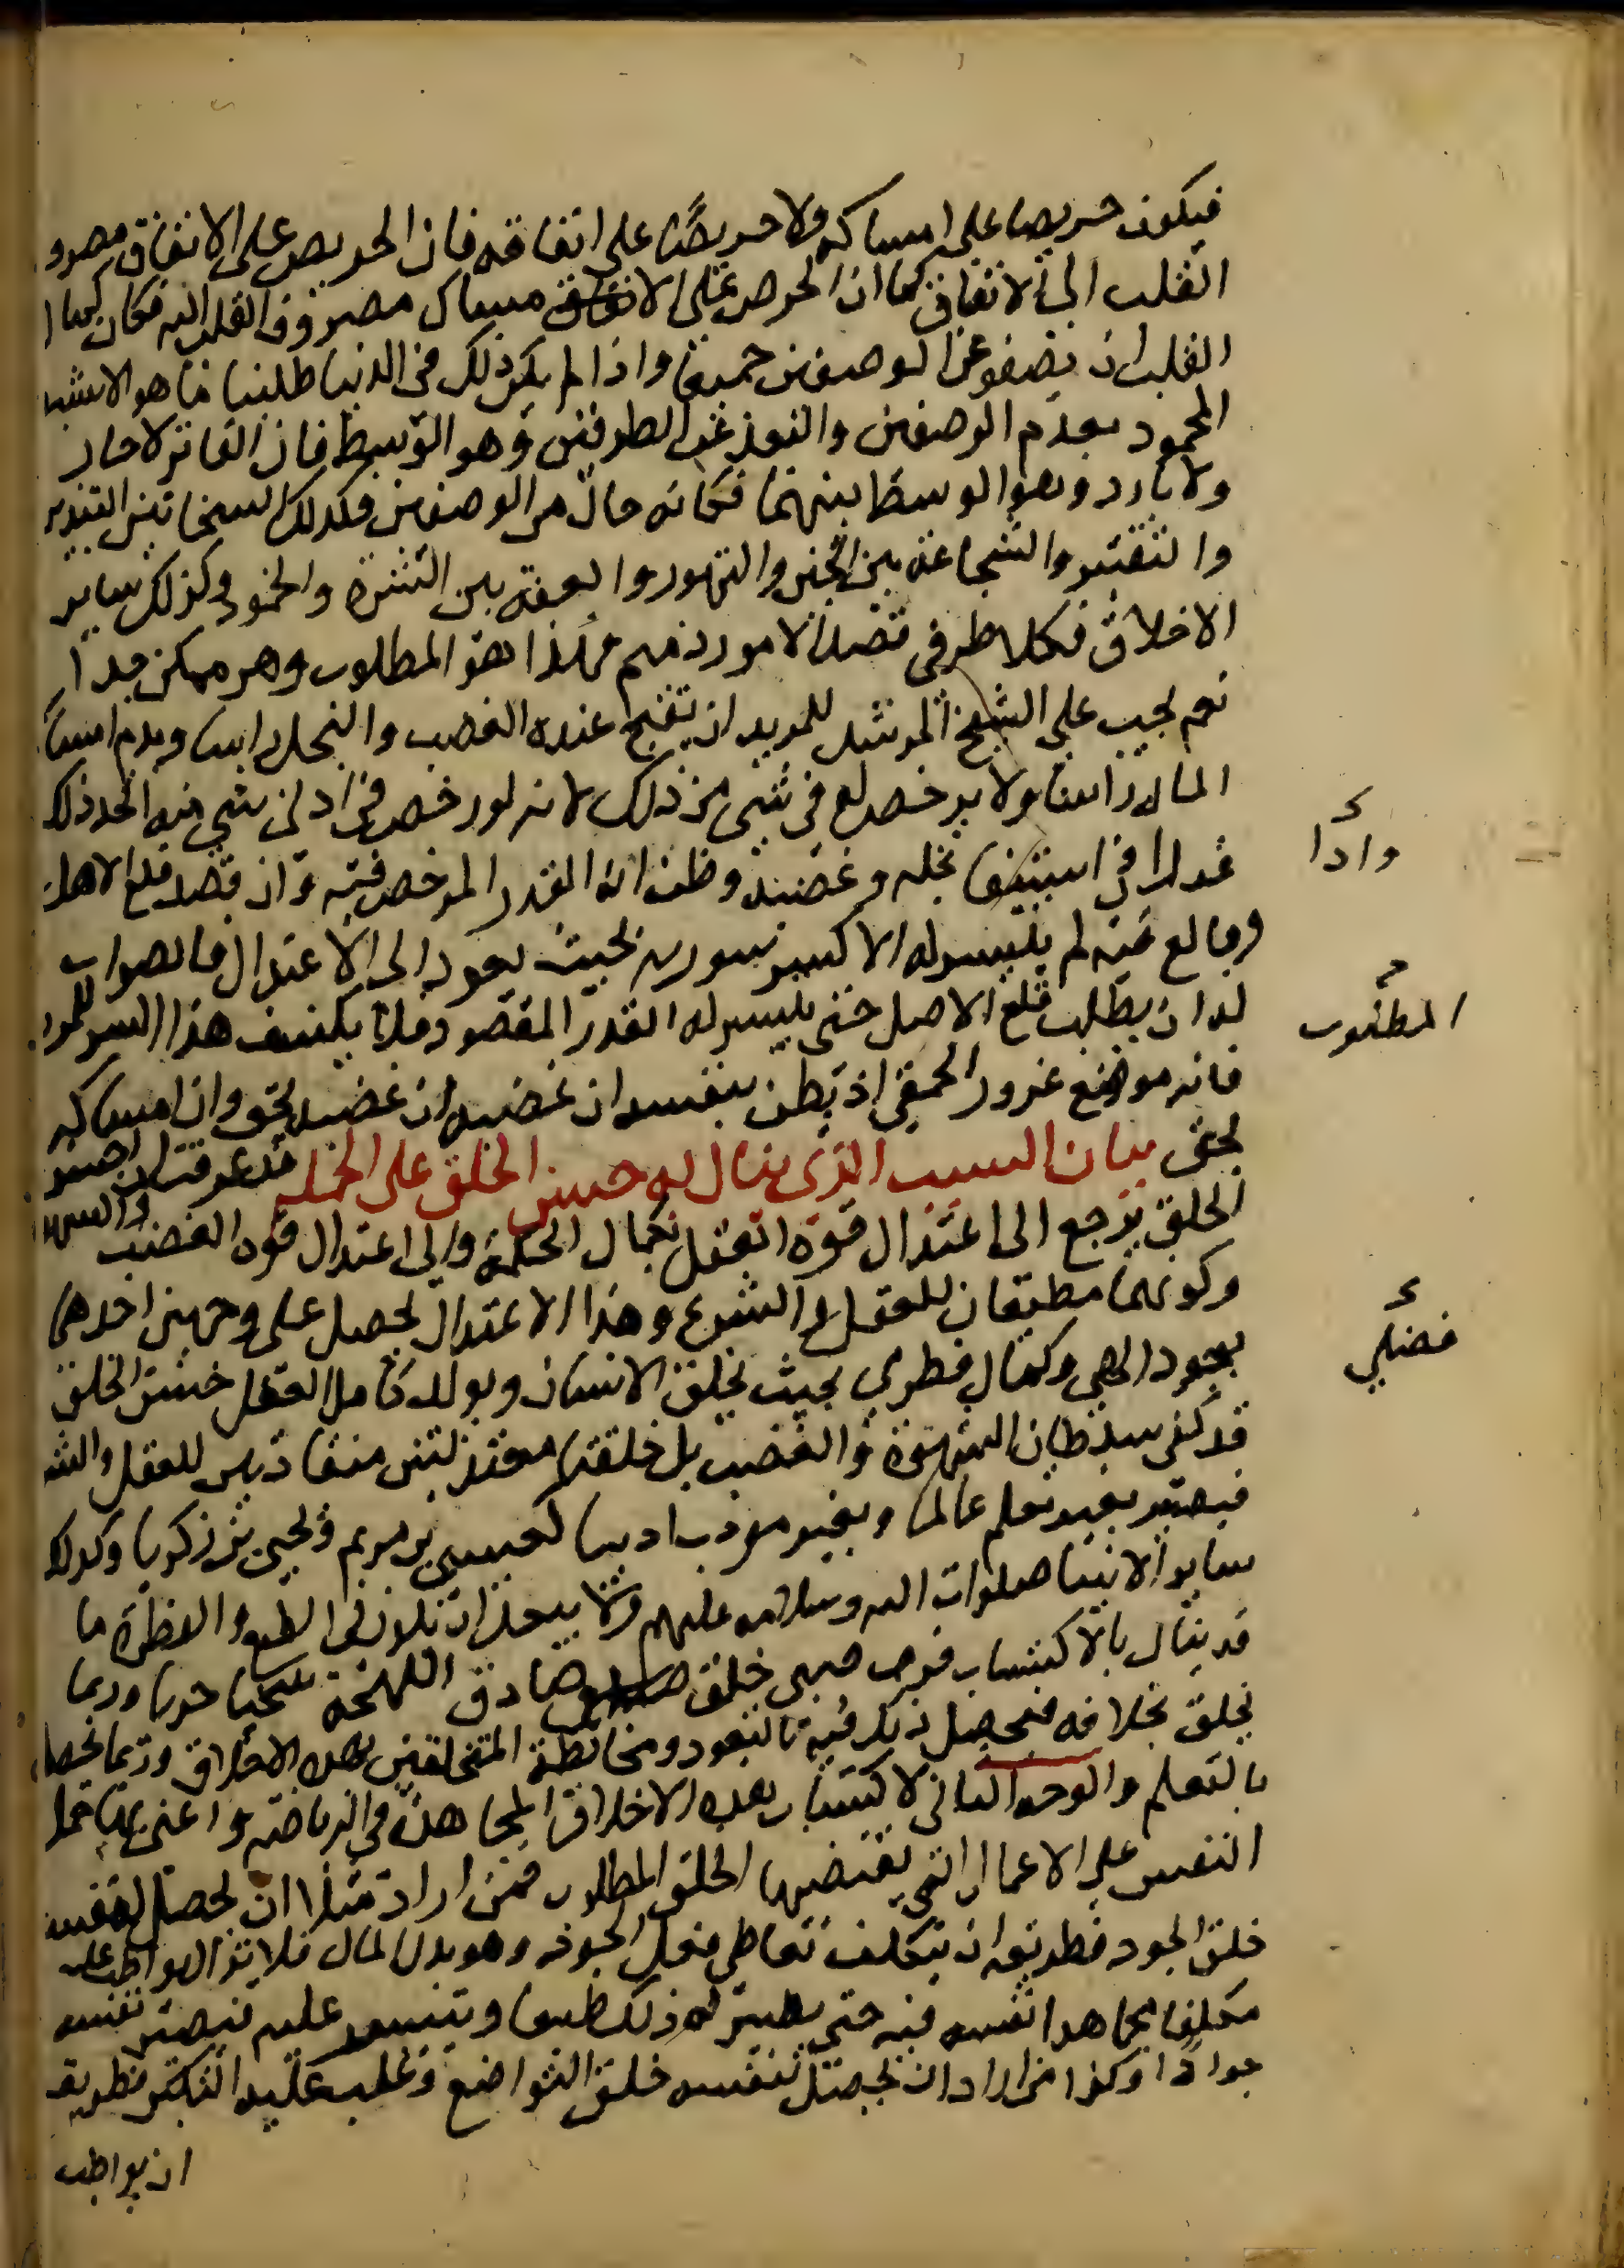 فيكون حريصا على امساكه ولا حريصًا على انفاقه فان الحريص على الانفاق مصرو
القلب الى الانفاق كما ان الحرص على الا مساك مصروف القلب اليه فكان كمال
القلب ان يصفو عن الوصفين جميعا واذا لم يكن ذلك في الدنيا طلبنا ما هو الاشبه
المحمود بعدم الوصفين والبعد عن الطرفين وهو الوسط فان الفاتر لا حار
ولا بارد وهو الوسط بينهما فكانه خال من الوصفين فكذلك السخا بين التبذير
والتقتير والشجاعة بين الجبن والتهور والعفة بين الشره والخمود وكذلك ساير
الاخلاق فكلا طرفي قصد الامور ذميم هذا هو المطلوب وهو ممكن جدا
نعم يجب على الشيخ المرشد للمريد ان يقبح عنده الغضب والبخل راسا ويذم امساك
المال راسا ولا يرخص له في شي من ذلك لانه لو رخص في ادنى شي منه اتخذ ذلك
عذرا في استبقا بخله وغضبه وظن انه القدر المرخص فيه وان قصد قلع الاصل
وبالغ فيه لم يتيسر له الا كسر سورته بحيث يعود الى الاعتدال فالصواب
له ان يطلب قلع الاصل حتى يتيسر له القدر المقصود فلا يكشف هذا السر للمريد
فانه موضع غرور الحمقى اذ يظن بنفسه ان غضبه ان غضبه بحق وان امساكه
بحق بيان السبب الذي ينال به حسن الخلق على الجملة قد عرفت ان حسن
الخلق يرجع الى اعتدال قوة العقل بكمال الحكمة والى اعتدال قوة الغضب والشهوة
وكونهما مطيعان للعقل والشرع وهذا الاعتدال يحصل على وجهين احدهما
بجود الهي وكمال فطري بحيث يخلق الانسان ويولد كامل العقل حسن الخلق
قد كفي سلطان الشهوة والغضب بل خلقتا معتدلتين منقادتين للعقل والشر
فيصير بغير تعلم عالما وبغير مودب اديبا كعيسى بن مريم ويحيى بن زكريا وكذلك
ساير الانبيا صلوات الله وسلامه عليهم ولا يبعد ان يكون في الطبع والفطرة ما
قد ينال بالاكتساب فرب صبي خلق صادق اللهجة سخيا جريا وربما
يخلق بخلافه فيحصل ذلك فيه بالتعود ومخالطة المتخلقين بهذه الاخلاق وربما يحصل
بالتعلم والوجه الثاني الاكتساب بهذه الاخلاق المجاهدة والرياضة واعني بها حمل
النفس على الاعمال التي يقتضيها الخلق المطلوب فمن اراد مثلا ان يحصل لنفسه
خلق الجود فطريقه ان يتكلف تعاطي فعل الجود وهو بذل المال فلا يزال يواظب عليه
متكلفا مجاهدا نفسه فيه حتى يصير له ذلك طبعا ويتيسر عليه فيصير نفسه
جوادًا وكذا من اراد ان يحصل لنفسه خلق التواضع وغلب عليه التكبر فطريقه
ان يواظب
واذا
المطلوب
فضلي